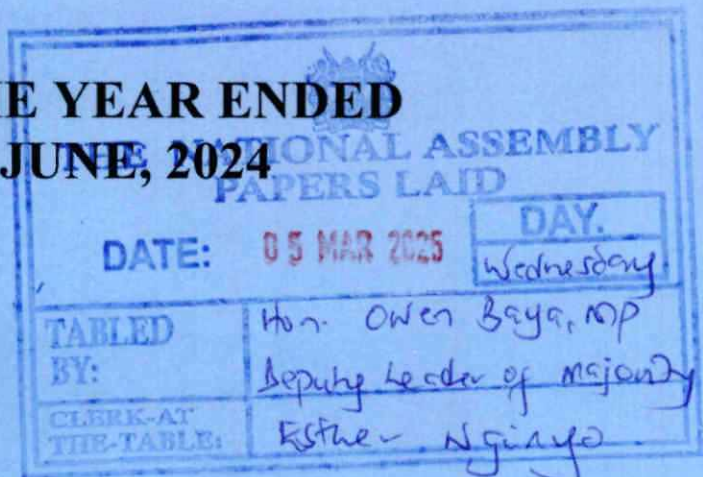 E YEAR ENDED
JUNE, 2024
THE NATIONAL ASSEMBLY
PAPERS LAID
DATE: 05 MAR 2025
DAY.
Wednesday
TABLED BY: Hon. Owen Baya, MP
Deputy Leader of Majority
CLERK-AT THE-TABLE: Esther Nginyo